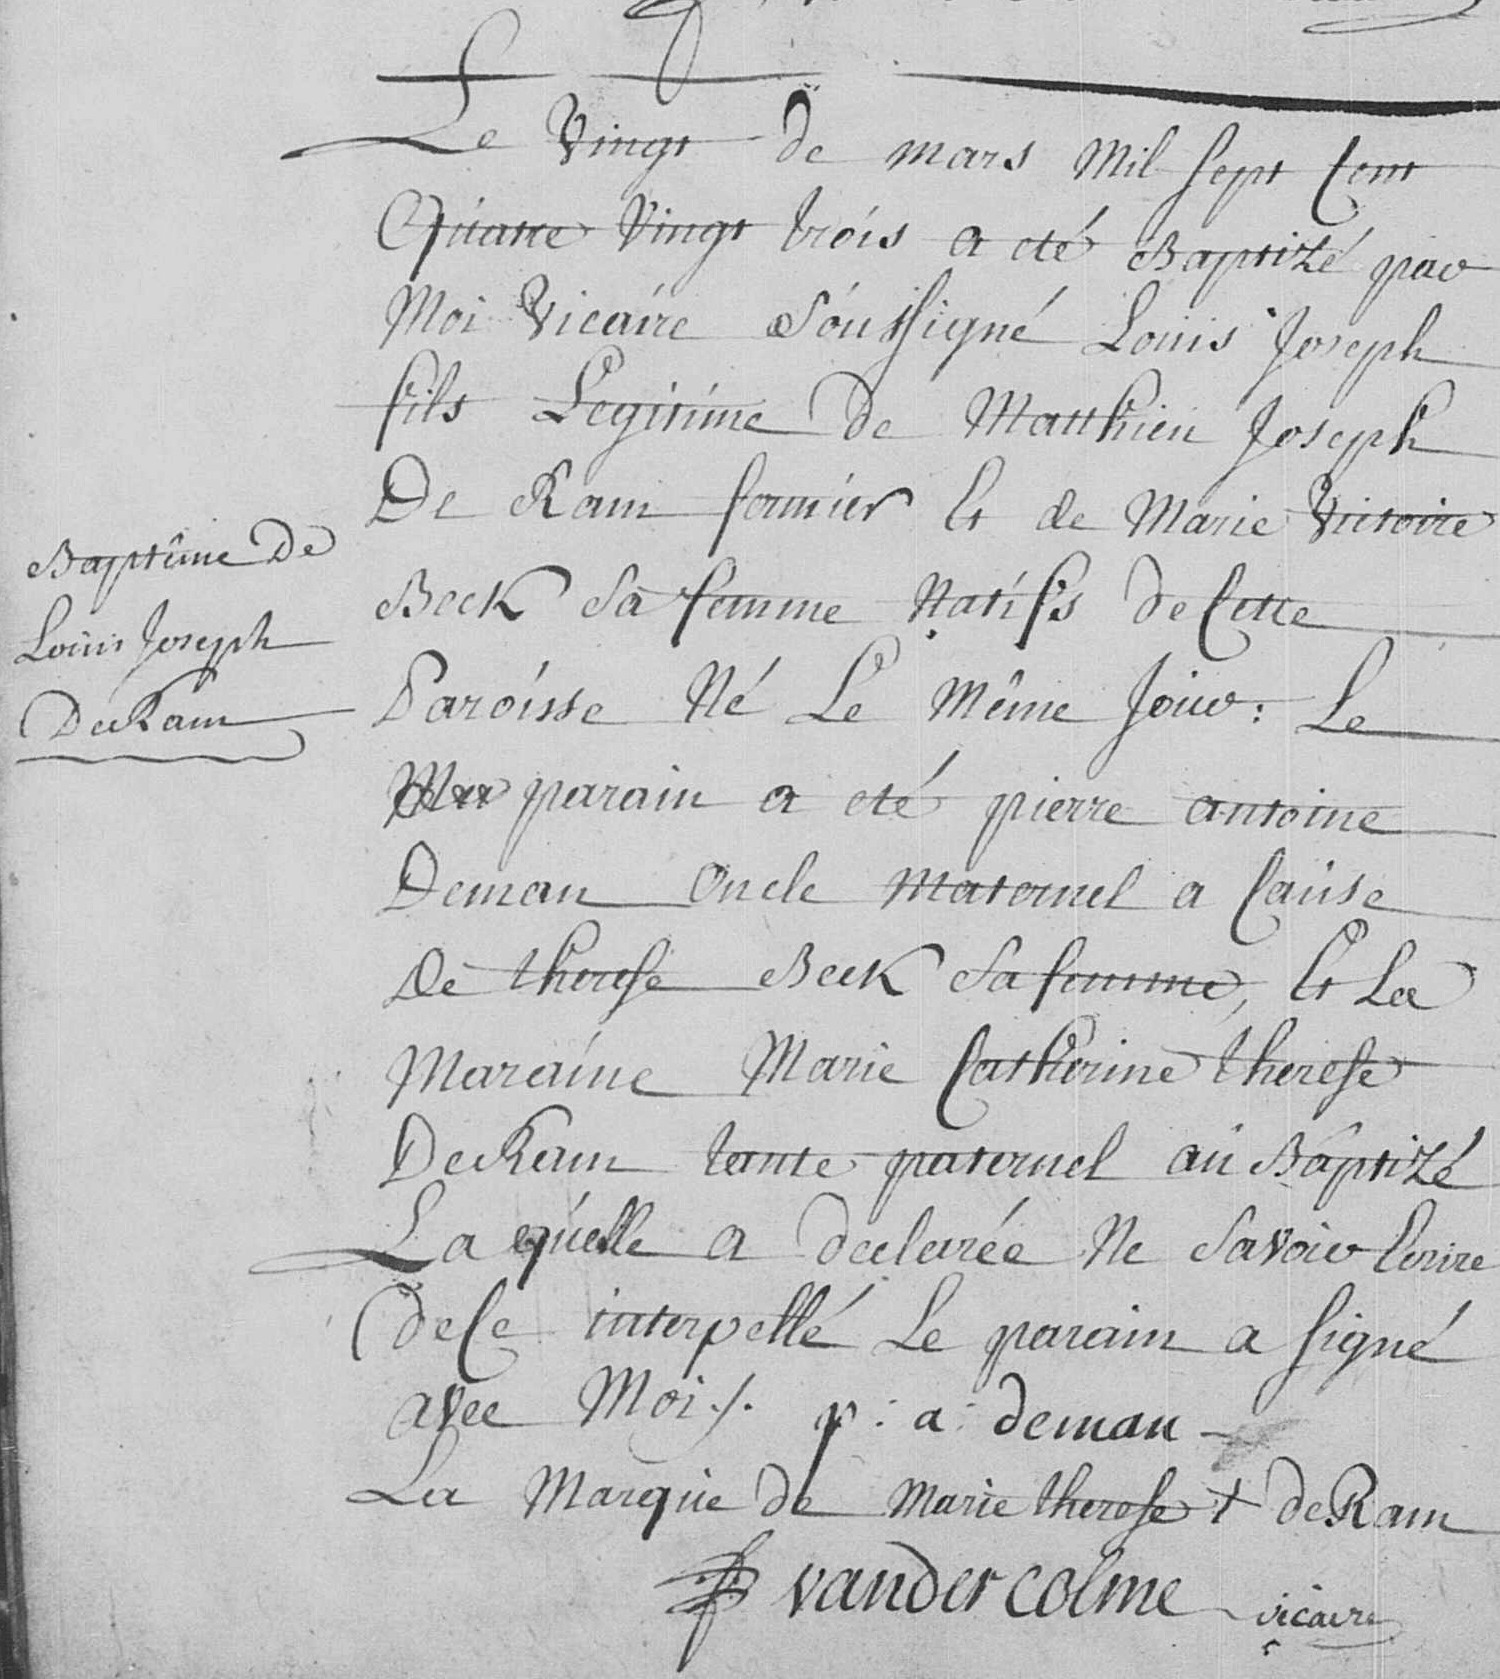 Le Vingt de mars Mil sept Cent
Quatre Vingt trois a eté Baptizé par
Moi Vicaire Soussigné Louis Joseph
fils Legitime de Matthieu Joseph
De Ram fermier Et de Marie Victoire
Beck Sa femme Natifs de Cette
Paroisse Né Le Même Jour : Le
parain a eté pierre antoine
Deman Oncle Maternel a Cause
De therese Beck Sa femme, Et La
Maraine Marie Catherine therese
DeRam tante paternel au Baptizé
La quelle a declarée Ne Savoir Ecrire
de Ce interpellé Le parain a signé
avec Moi ./. p : a : deman
La Marque de Marie therese + deRam
vander colme vicaire
Baptême De
Louis Joseph
DeRam